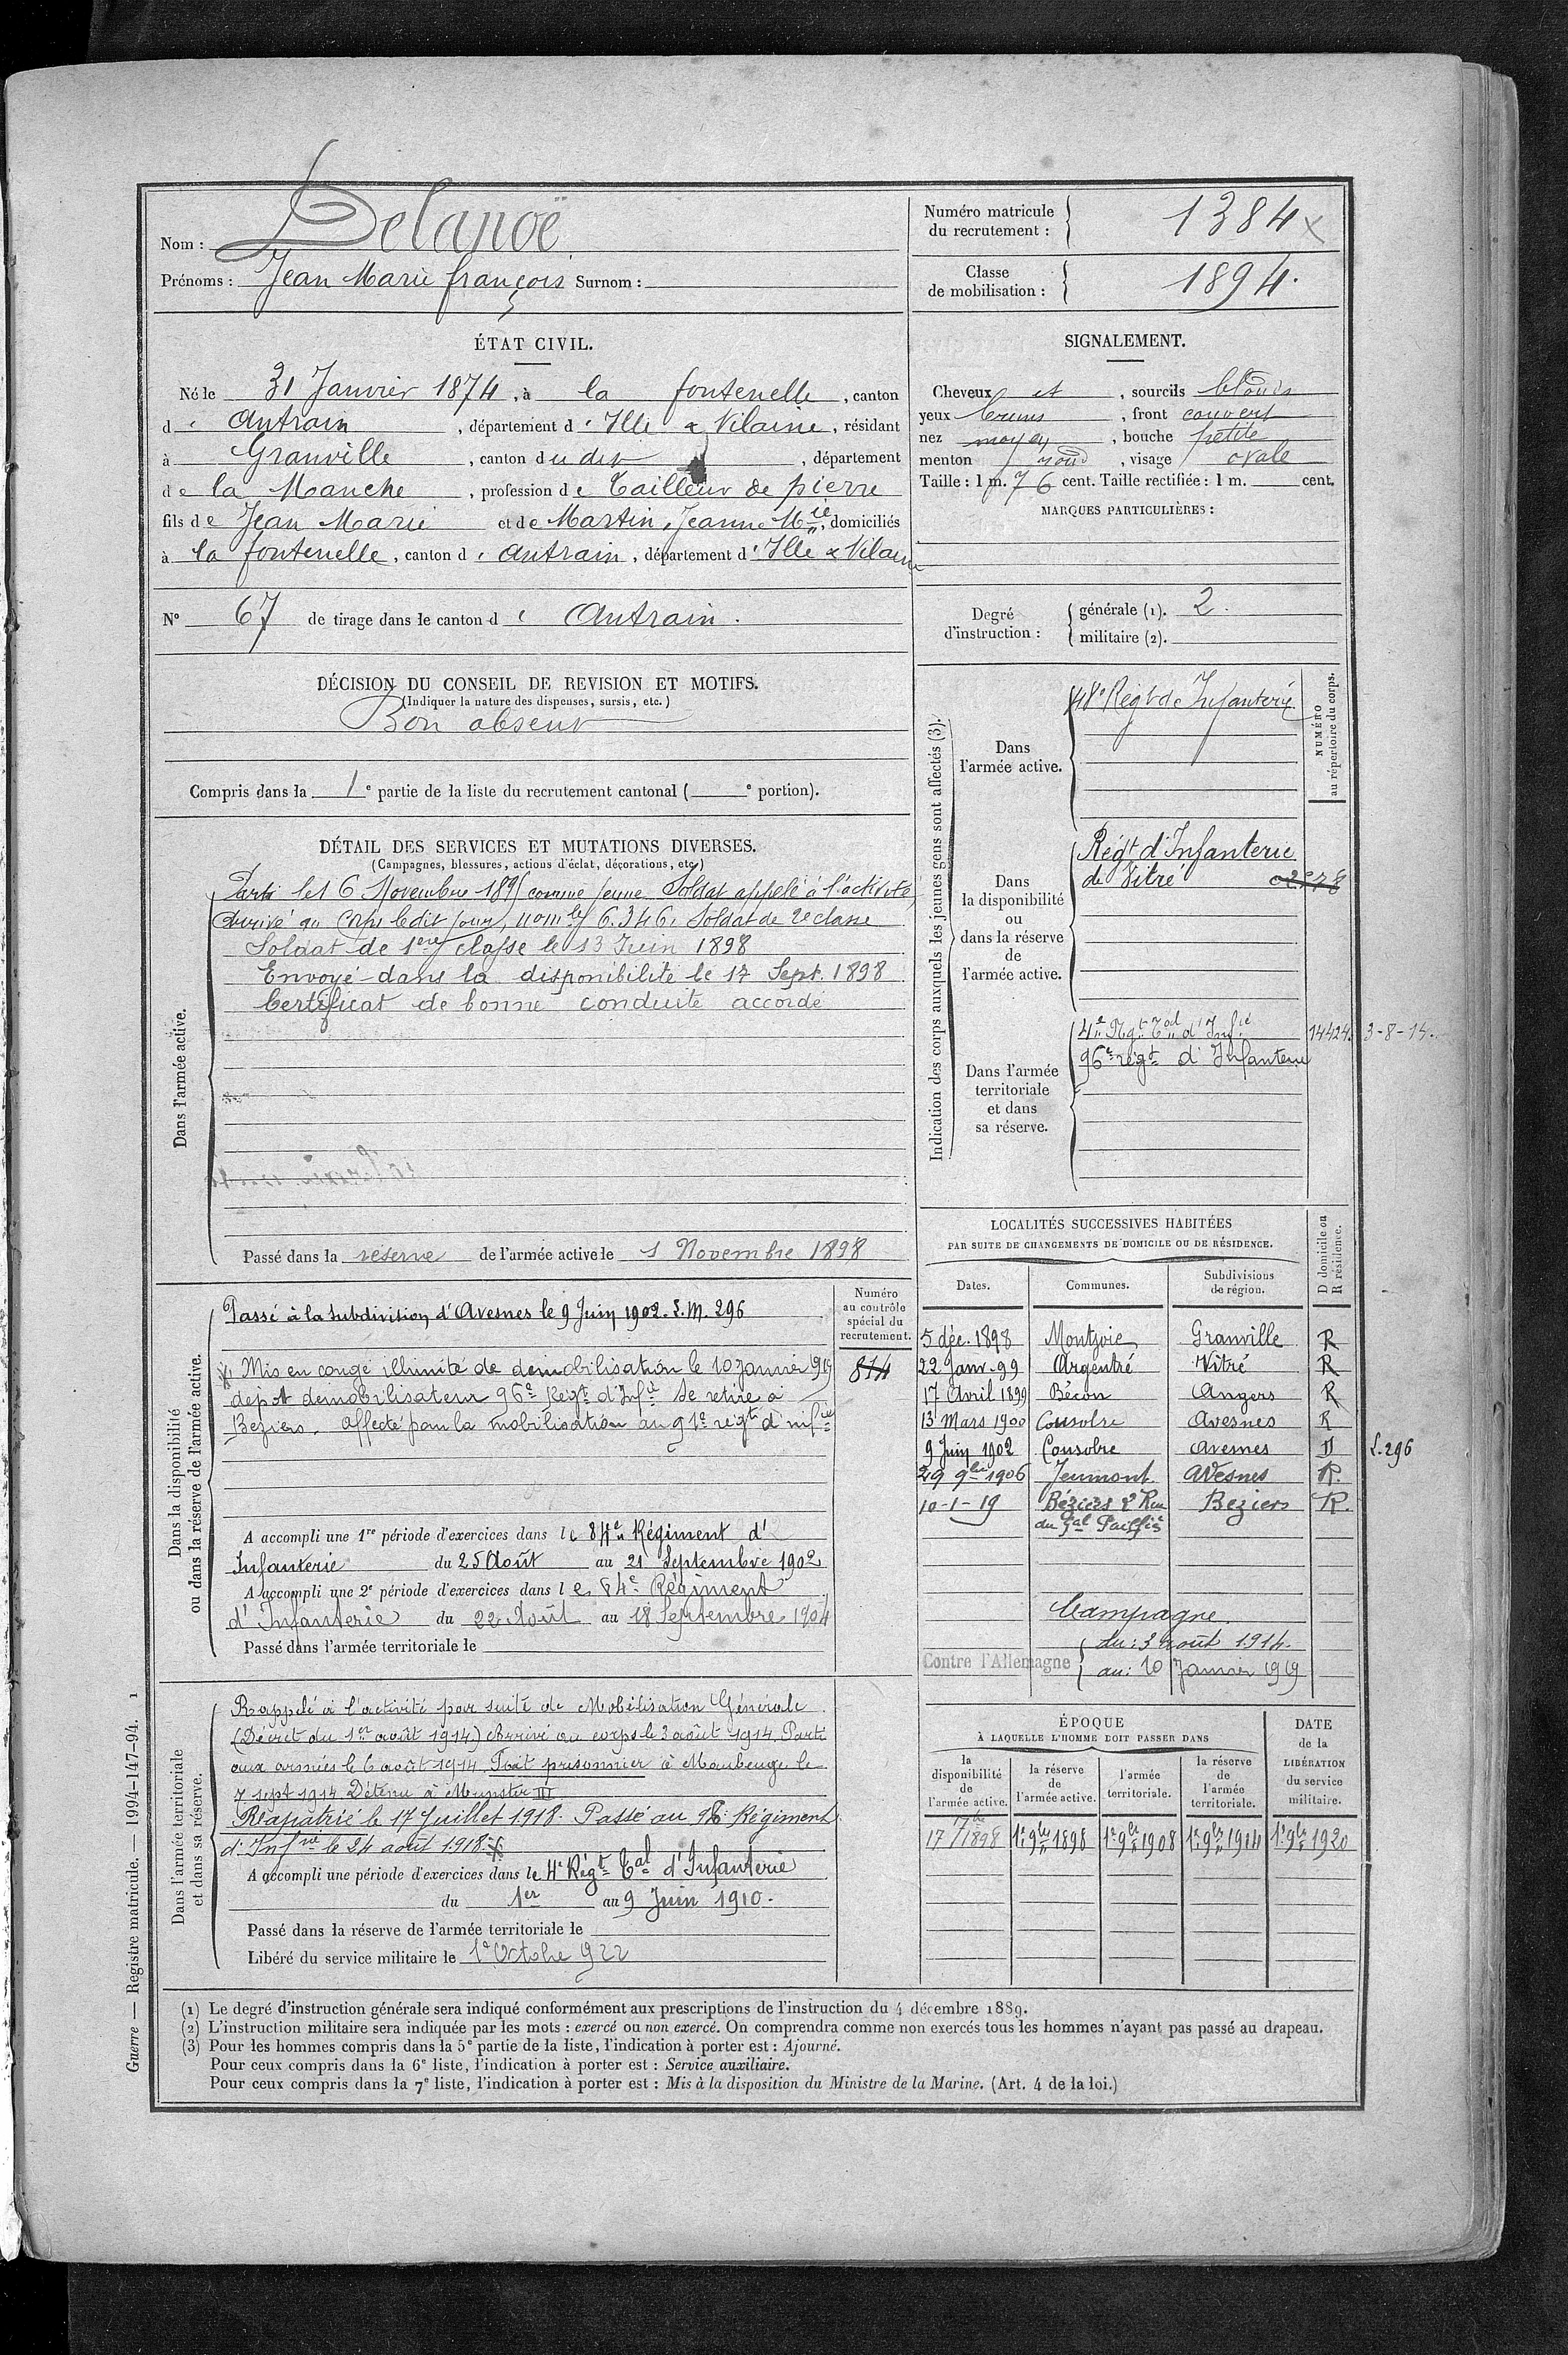 Nom : Delanoë
Prénoms : Jean Marie françois Surnom :
Numéro matricule du recrutement : 1384 x
Classe de mobilisation : 1894.
ÉTAT CIVIL.
Né le 31 Janvier 1874, à la fontenelle, canton
d' Antrain, département d'Ille & Vilaine, résidant
à Granville, canton du dit, département
de la Manche, profession de Tailleur de pierre
fils de Jean Marie et de Martin, Jeanne Mie, domiciliés
à la fontenelle, canton d' Antrain, département d'Ille & Vilaine
N° 67 de tirage dans le canton d' Antrain.
SIGNALEMENT.
Cheveux et, sourcils blonds
yeux bruns, front couvert
nez moyen, bouche petite
menton rond, visage ovale
Taille : 1 m. 76 cent. Taille rectifiée : 1 m. cent.
MARQUES PARTICULIÈRES :
Degré d'instruction : générale (1). 2.
militaire (2).
DÉCISION DU CONSEIL DE REVISION ET MOTIFS.
(Indiquer la nature des dispenses, sursis, etc.)
Bon absent
Compris dans la 1e partie de la liste du recrutement cantonal ( e portion).
DÉTAIL DES SERVICES ET MUTATIONS DIVERSES.
(Campagnes, blessures, actions d'éclat, décorations, etc.)
Dans l'armée active.
Parti le 16 Novembre 1895 comme jeune Soldat appelé à l'activité,
Arrivé au Corps ledit jour, 6.346. Soldat de 2e classe
Soldat de 1ere classe le 13 Juin 1898
Envoyé dans la disponibilité le 17 Sept. 1898
Certificat de bonne conduite accordé
Passé dans la réserve de l'armée active le 1 Novembre 1898
Indication des corps auxquels les jeunes gens sont affectés (3).
NUMÉRO au répertoire du corps.
Dans l'armée active.
48e Régt de Infanterie
Dans la disponibilité ou dans la réserve de l'armée active.
Régt d'Infanterie
de Vitré
Dans l'armée territoriale et dans sa réserve.
4e Rgt Tal d'Infie 14424. 3-8-14.
96e régt d'Infanterie
LOCALITÉS SUCCESSIVES HABITÉES
PAR SUITE DE CHANGEMENTS DE DOMICILE OU DE RÉSIDENCE.
Dates. Communes. Subdivisions de région. D domicile ou R résidence.
5 déc. 1898 Montjoie Granville R
22 Janv. 99 Argentré Vitré R
17 Avril 1899 Bécon Angers R
13 Mars 1900 Cousolre Avesnes R
9 Juin 1902 Cousolre Avesnes D L. 296
29 9bre 1906 Jeumont Avesnes R.
10-1-19 Béziers 2 Rue Beziers R.
du Gal
Campagne.
Contre l'Allemagne
du : 3 août 1914.
au : 10 Janvier 1919
Dans la disponibilité ou dans la réserve de l'armée active.
Numéro au contrôle spécial du recrutement.
814
Passé à la subdivision d'Avesnes le 9 Juin 1902. L. M. 296
Mis en congé illimité de démobilisation le 10 janvier 1919
dépôt démobilisateur 96e Regt d'Infie Se retire à
Beziers. affecté pour la mobilisation au 91e régt d'infie
A accompli une 1re période d'exercices dans le 84e Régiment d'
Infanterie du 25 Août au 21 Septembre 1902
A accompli une 2e période d'exercices dans le 84e Régiment
d'Infanterie du 22 Août au 18 Septembre 1904
Passé dans l'armée territoriale le
Dans l'armée territoriale et dans sa réserve.
Rappelé à l'activité par suite de Mobilisation Générale
(Décret du 1er août 1914) Arrivé au corps le 3 août 1914. Parti
aux armées le 6 août 1914. Fait prisonnier à Maubeuge le
7 sept 1914 Détenu à Munster III
Rapatrié le 17 Juillet 1918. Passé au 96e Régiment
d'Infrie le 24 août 1918.
A accompli une période d'exercices dans le 4e Régt Tal d'Infanterie
du 1er au 9 Juin 1910.
Passé dans la réserve de l'armée territoriale le
Libéré du service militaire le 1e Octobre 922
ÉPOQUE
À LAQUELLE L'HOMME DOIT PASSER DANS
la disponibilité de l'armée active.
la réserve de l'armée active.
l'armée territoriale.
la réserve de l'armée territoriale.
DATE de la LIBÉRATION du service militaire.
17 7bre 1898 1er 9bre 1898 1er 9bre 1908 1er 9bre 1914 1er 9bre 1920
(1) Le degré d'instruction générale sera indiqué conformément aux prescriptions de l'instruction du 4 décembre 1889.
(2) L'instruction militaire sera indiquée par les mots : exercé ou non exercé. On comprendra comme non exercés tous les hommes n'ayant pas passé au drapeau.
(3) Pour les hommes compris dans la 5e partie de la liste, l'indication à porter est : Ajourné.
Pour ceux compris dans la 6e liste, l'indication à porter est : Service auxiliaire.
Pour ceux compris dans la 7e liste, l'indication à porter est : Mis à la disposition du Ministre de la Marine. (Art. 4 de la loi.)
Guerre — Registre matricule. — 1994-147-94. 1